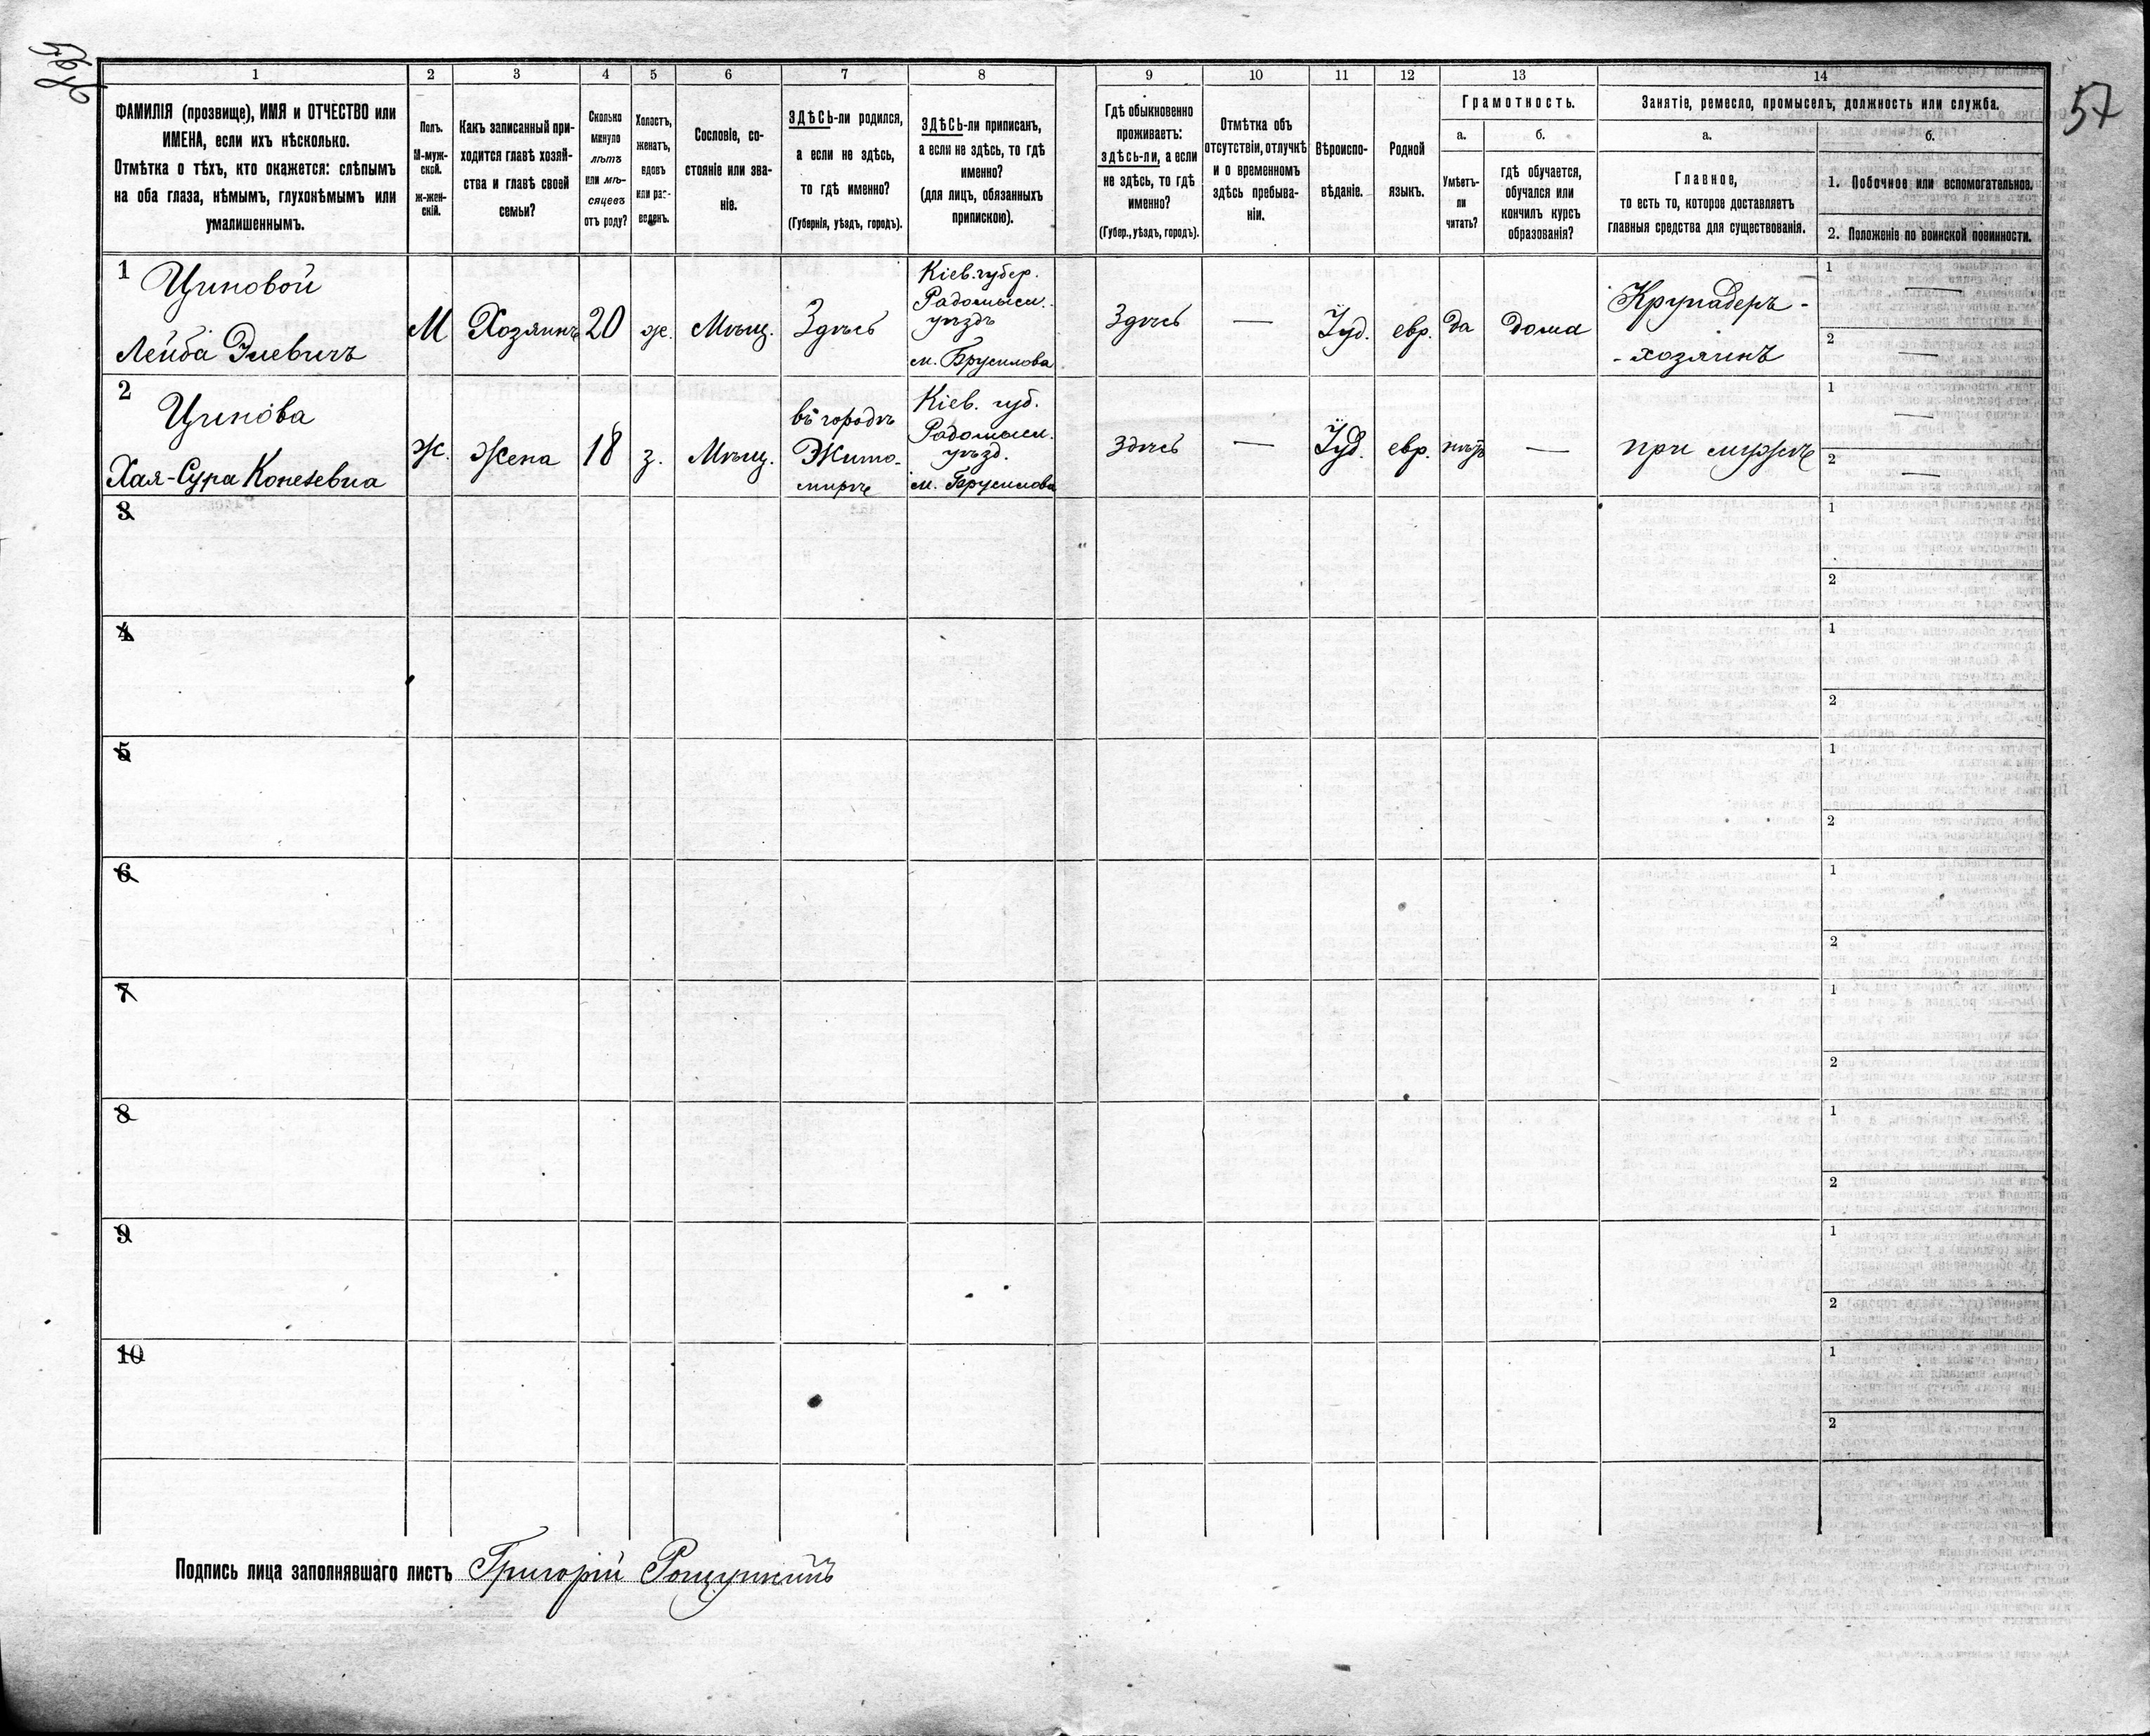 57
1 2 3 4 5 6 7 8 9 10 11 12 13 14
ФАМИЛІЯ (прозвище), ИМЯ и ОТЧЕСТВО или
ИМЕНА, если ихъ нѣсколько.
Отмѣтка о тѣхъ, кто окажется: слѣпымъ
на оба глаза, нѣмымъ, глухонѣмымъ или
умалишеннымъ.
Полъ.
М-муж-
ской.
ж-жен-
скій.
Какъ записанный при-
ходится главѣ хозяй-
ства и главѣ своей
семьи?
Сколько
минуло
лѣтъ
или мѣ-
сяцевъ
отъ роду?
Холостъ,
женатъ,
вдовъ
или раз-
веденъ.
Сословіе, со-
стояніе или зва-
ніе.
ЗДѢСЬ-ли родился,
а если не здѣсь,
то гдѣ именно?
(Губернія, уѣздъ, городъ).
ЗДѢСЬ-ли приписанъ,
а если не здѣсь, то гдѣ
именно?
(для лицъ, обязанныхъ
припискою).
Гдѣ обыкновенно
проживаетъ:
здѣсь-ли, а если
не здѣсь, то гдѣ
именно?
(Губер., уѣздъ, городъ).
Отмѣтка объ
отсутствіи, отлучкѣ
и о временномъ
здѣсь пребыва-
ніи.
Вѣроиспо-
вѣданіе.
Родной
языкъ.
Грамотность.
а.
Умѣетъ-
ли
читать?
б.
гдѣ обучается,
обучался или
кончилъ курсъ
образованія?
Занятіе, ремесло, промыселъ, должность или служба.
а.
Главное,
то есть то, которое доставляетъ
главныя средства для существованія.
б.
1. Побочное или вспомогательное.
2. Положеніе по воинской повинности.
1
Циновой
Лейба Элевичъ
М
Хозяинъ
20
ж.
Мѣщ.
Здѣсь
Кіев. губер.
Радомысл.
уѣздъ
м. Брусилова
Здѣсь
—
Іуд.
евр.
да
дома
Крупадеръ-
-хозяинъ
1 —
2 —
2
Цинова
Хая-Сура
Ж.
жена
18
з.
Мѣщ.
въ городѣ
Жито-
мирѣ
Кіев. губ.
Радомысл.
уѣзд.
м. Брусилова
здѣсь
—
Іуд.
евр.
нѣтъ
—
при мужѣ
1 —
2 —
3
1
2
4
1
2
5
1
2
6
1
2
7
1
2
8
1
2
9
1
2
10
1
2
Подпись лица заполнявшаго листъ Григорій